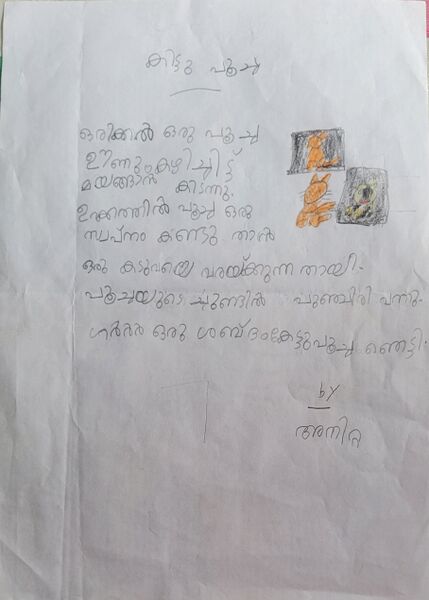 കിട്ടു പൂച്ച
ഒരിക്കൽ ഒരു പൂച്ച
ഊണുംകഴിച്ചിട്ട്
മയങ്ങാൻ കിടന്നു.
ഉറക്കത്തിൽ പൂച്ച ഒരു
സ്വപ്നം കണ്ടു താൻ
ഒരു കടുവയെ വരയ്ക്കുന്ന തായി.
പൂച്ചയുടെ ചുണ്ടിൽ പുഞ്ചിരി വന്നു.
ഗർർർ ഒരു ശബ്ദംകേട്ടുപൂച്ച ഞെട്ടി.
by
അനിറ്റ